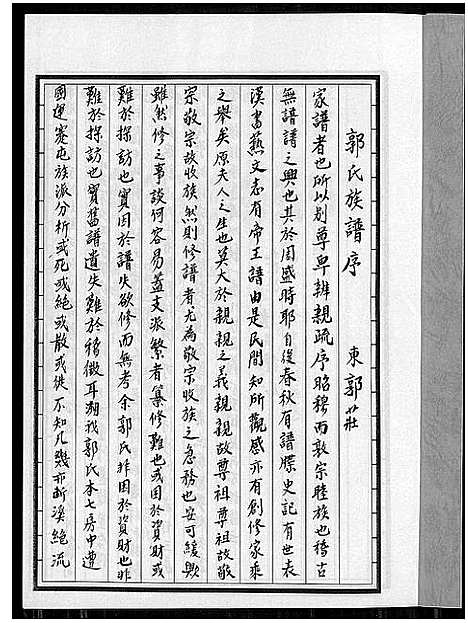 郭氏族譜序 東郭莊
家譜者也所以别尊卑辨親疏序昭穆而敦宗睦族也稽古
無譜譜之興也其於周盛時耶自後春秋有譜牒史記有世表
漢書藝文志有帝王譜由是民間知所觀感亦有創修家乘
之舉矣原夫人之生也莫大於親親之義親親故尊祖尊祖故敬
宗敬宗故收族然則修譜者尤為敬宗收族之急務也安可緩歟
雖然修之事談何容易蓋支派繁者纂修難也或因於資財或
難於探訪也實因於譜失欲修而無考余郭氏非因於資財也非
難於探訪也實舊譜遺失難於稽徵耳溯我郭氏本七房中遭
國運蹇屯族派分析或死或絕或散或徙不知凡幾亦断溪絕流